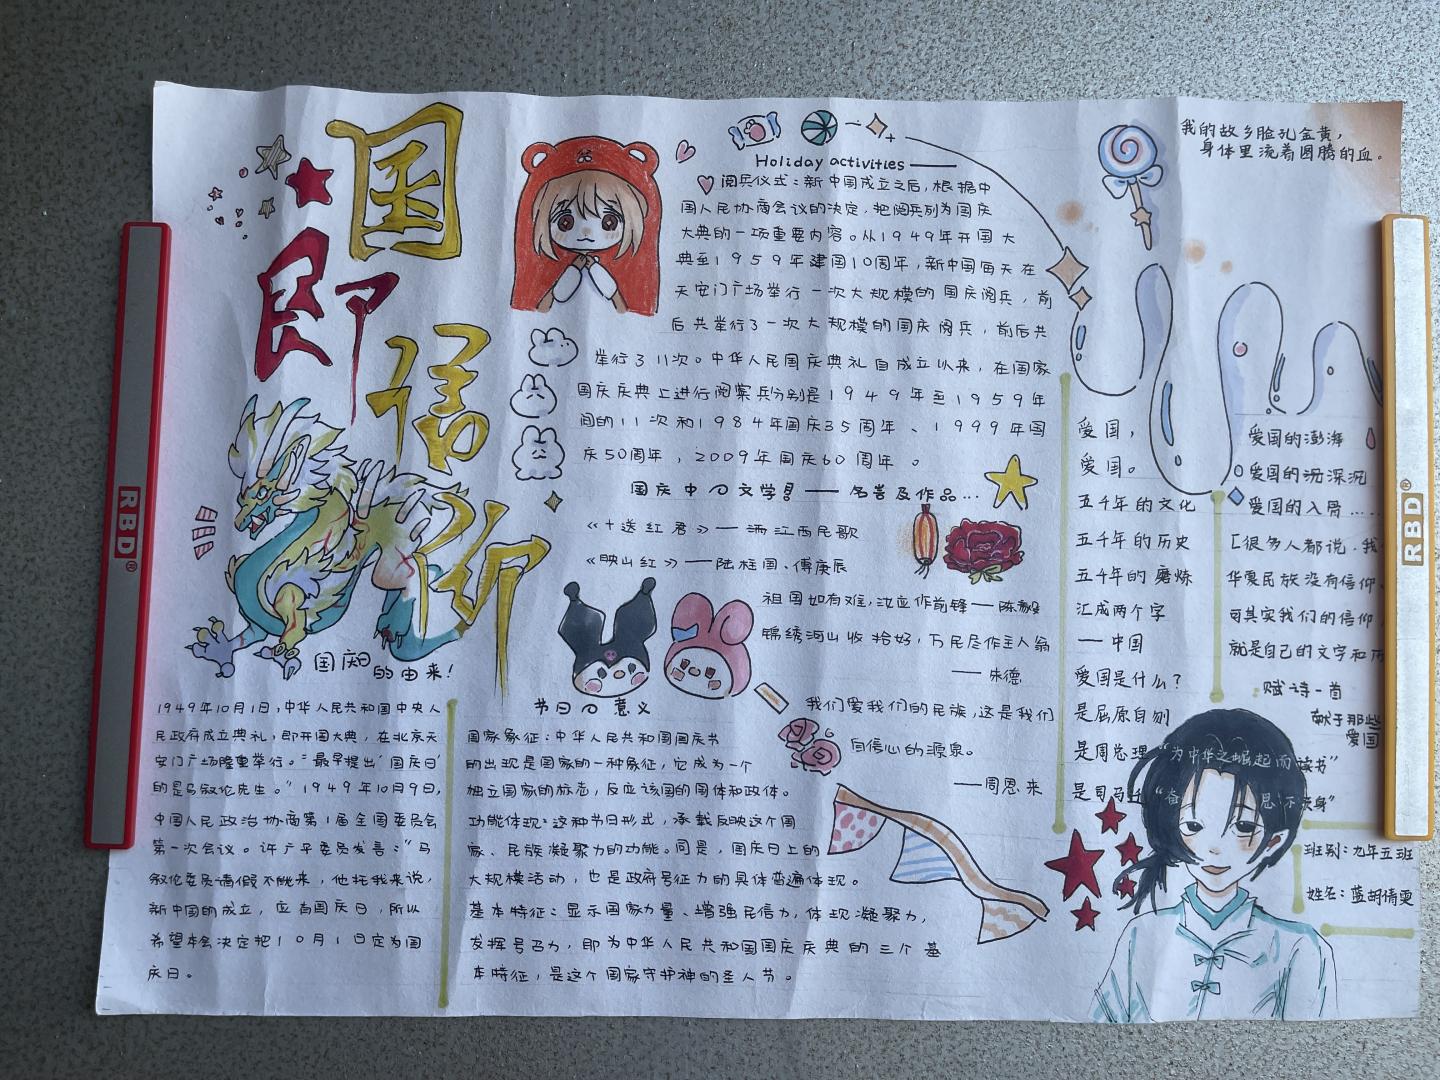 国
即
信
仰
国庆日的由来!
1949年10月1日,中华人民共和国中央人
民政府成立典礼,即开国大典,在北京天
安门广场隆重举行。"最早提出'国庆日'
的是马叙伦先生。"1949年10月9日,
中国人民政治协商第1届全国委员会
第一次会议。许广平委员发言:"马
叙伦委员请假不能来,他托我来说,
新中国的成立,应有国庆日,所以
希望本会决定把10月1日定为国
庆日。
Holiday activities
阅兵仪式:新中国成立之后,根据中
国人民协商会议的决定,把阅兵列为国庆
大典的一项重要内容。从1949年开国大
典至1959年建国10周年,新中国每天在
天安门广场举行一次大规模的国庆阅兵,前
后共举行了一次大规模的国庆阅兵,前后共
举行了11次。中华人民国庆典礼自成立以来,在国家
国庆庆典上进行阅兵分别是1949年至1959年
间的11次和1984年国庆35周年、1999年国
庆50周年,2009年国庆60周年。
国庆中の文学——名著及作品...
《十送红君》——江西民歌
《映山红》——陆柱国、傅庚辰
祖国如有难,汝应作前锋——陈毅
锦绣河山收拾好,万民尽作主人翁
——朱德
我们爱我们的民族,这是我们
自信心的源泉。
——周恩来
节日の意义
国家象征:中华人民共和国国庆节
的出现是国家的一种象征,它成为一个
独立国家的标志,反应该国的国体和政体。
功能体现:这种节日形式,承载反映这个国
家、民族凝聚力的功能。同是,国庆日上的
大规模活动,也是政府号征力的具体普遍体现。
基本特征:显示国家力量、增强民信力,体现凝聚力,
发挥号召力,即为中华人民共和国国庆庆典的三个基
本特征,是这个国家守护神的圣人节。
我的故乡脸孔金黄,
身体里流着图腾的血。
爱国,
爱国。
五千年的文化
五千年的历史
五千年的磨炼
汇成两个字
——中国
爱国是什么?
是屈原自刎
是周总理"为中华之崛起而读书"
是司马"奋 思 不 身"
爱国的澎湃
爱国的沉深沉
爱国的入骨......
[很多人都说,我
华夏民族没有信仰
可其实我们的信仰
就是自己的文字和历
赋诗一首
献于那些
爱国
班别:九年五班
姓名:蓝胡倩雯
RBD
RBD